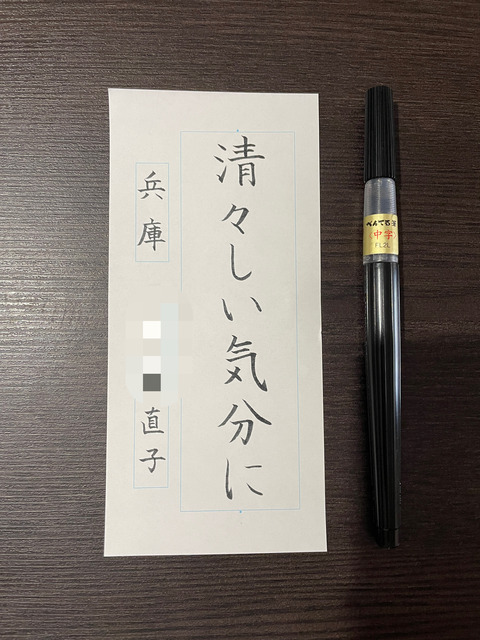 清々しい気分に
兵庫
直子
ぺんてる筆
〈中字〉
FL2L